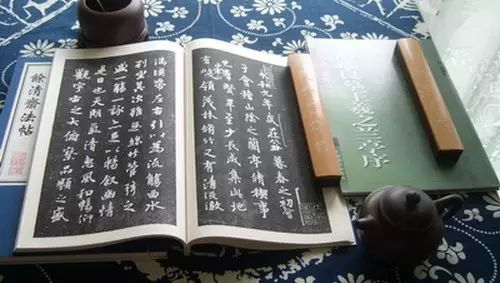 永和九年歲在癸丑暮春之初會
于會稽山陰之蘭亭脩禊事
也群賢畢至少長咸集此地
有崇山峻領茂林脩竹又有清流激
湍暎帶左右引以為流觴曲水
列坐其次雖無絲竹管弦之
盛一觴一詠亦足以暢敘幽情
是日也天朗氣清惠風和暢仰
觀宇宙之大俯察品類之盛
餘清齋法帖
王羲之蘭亭序